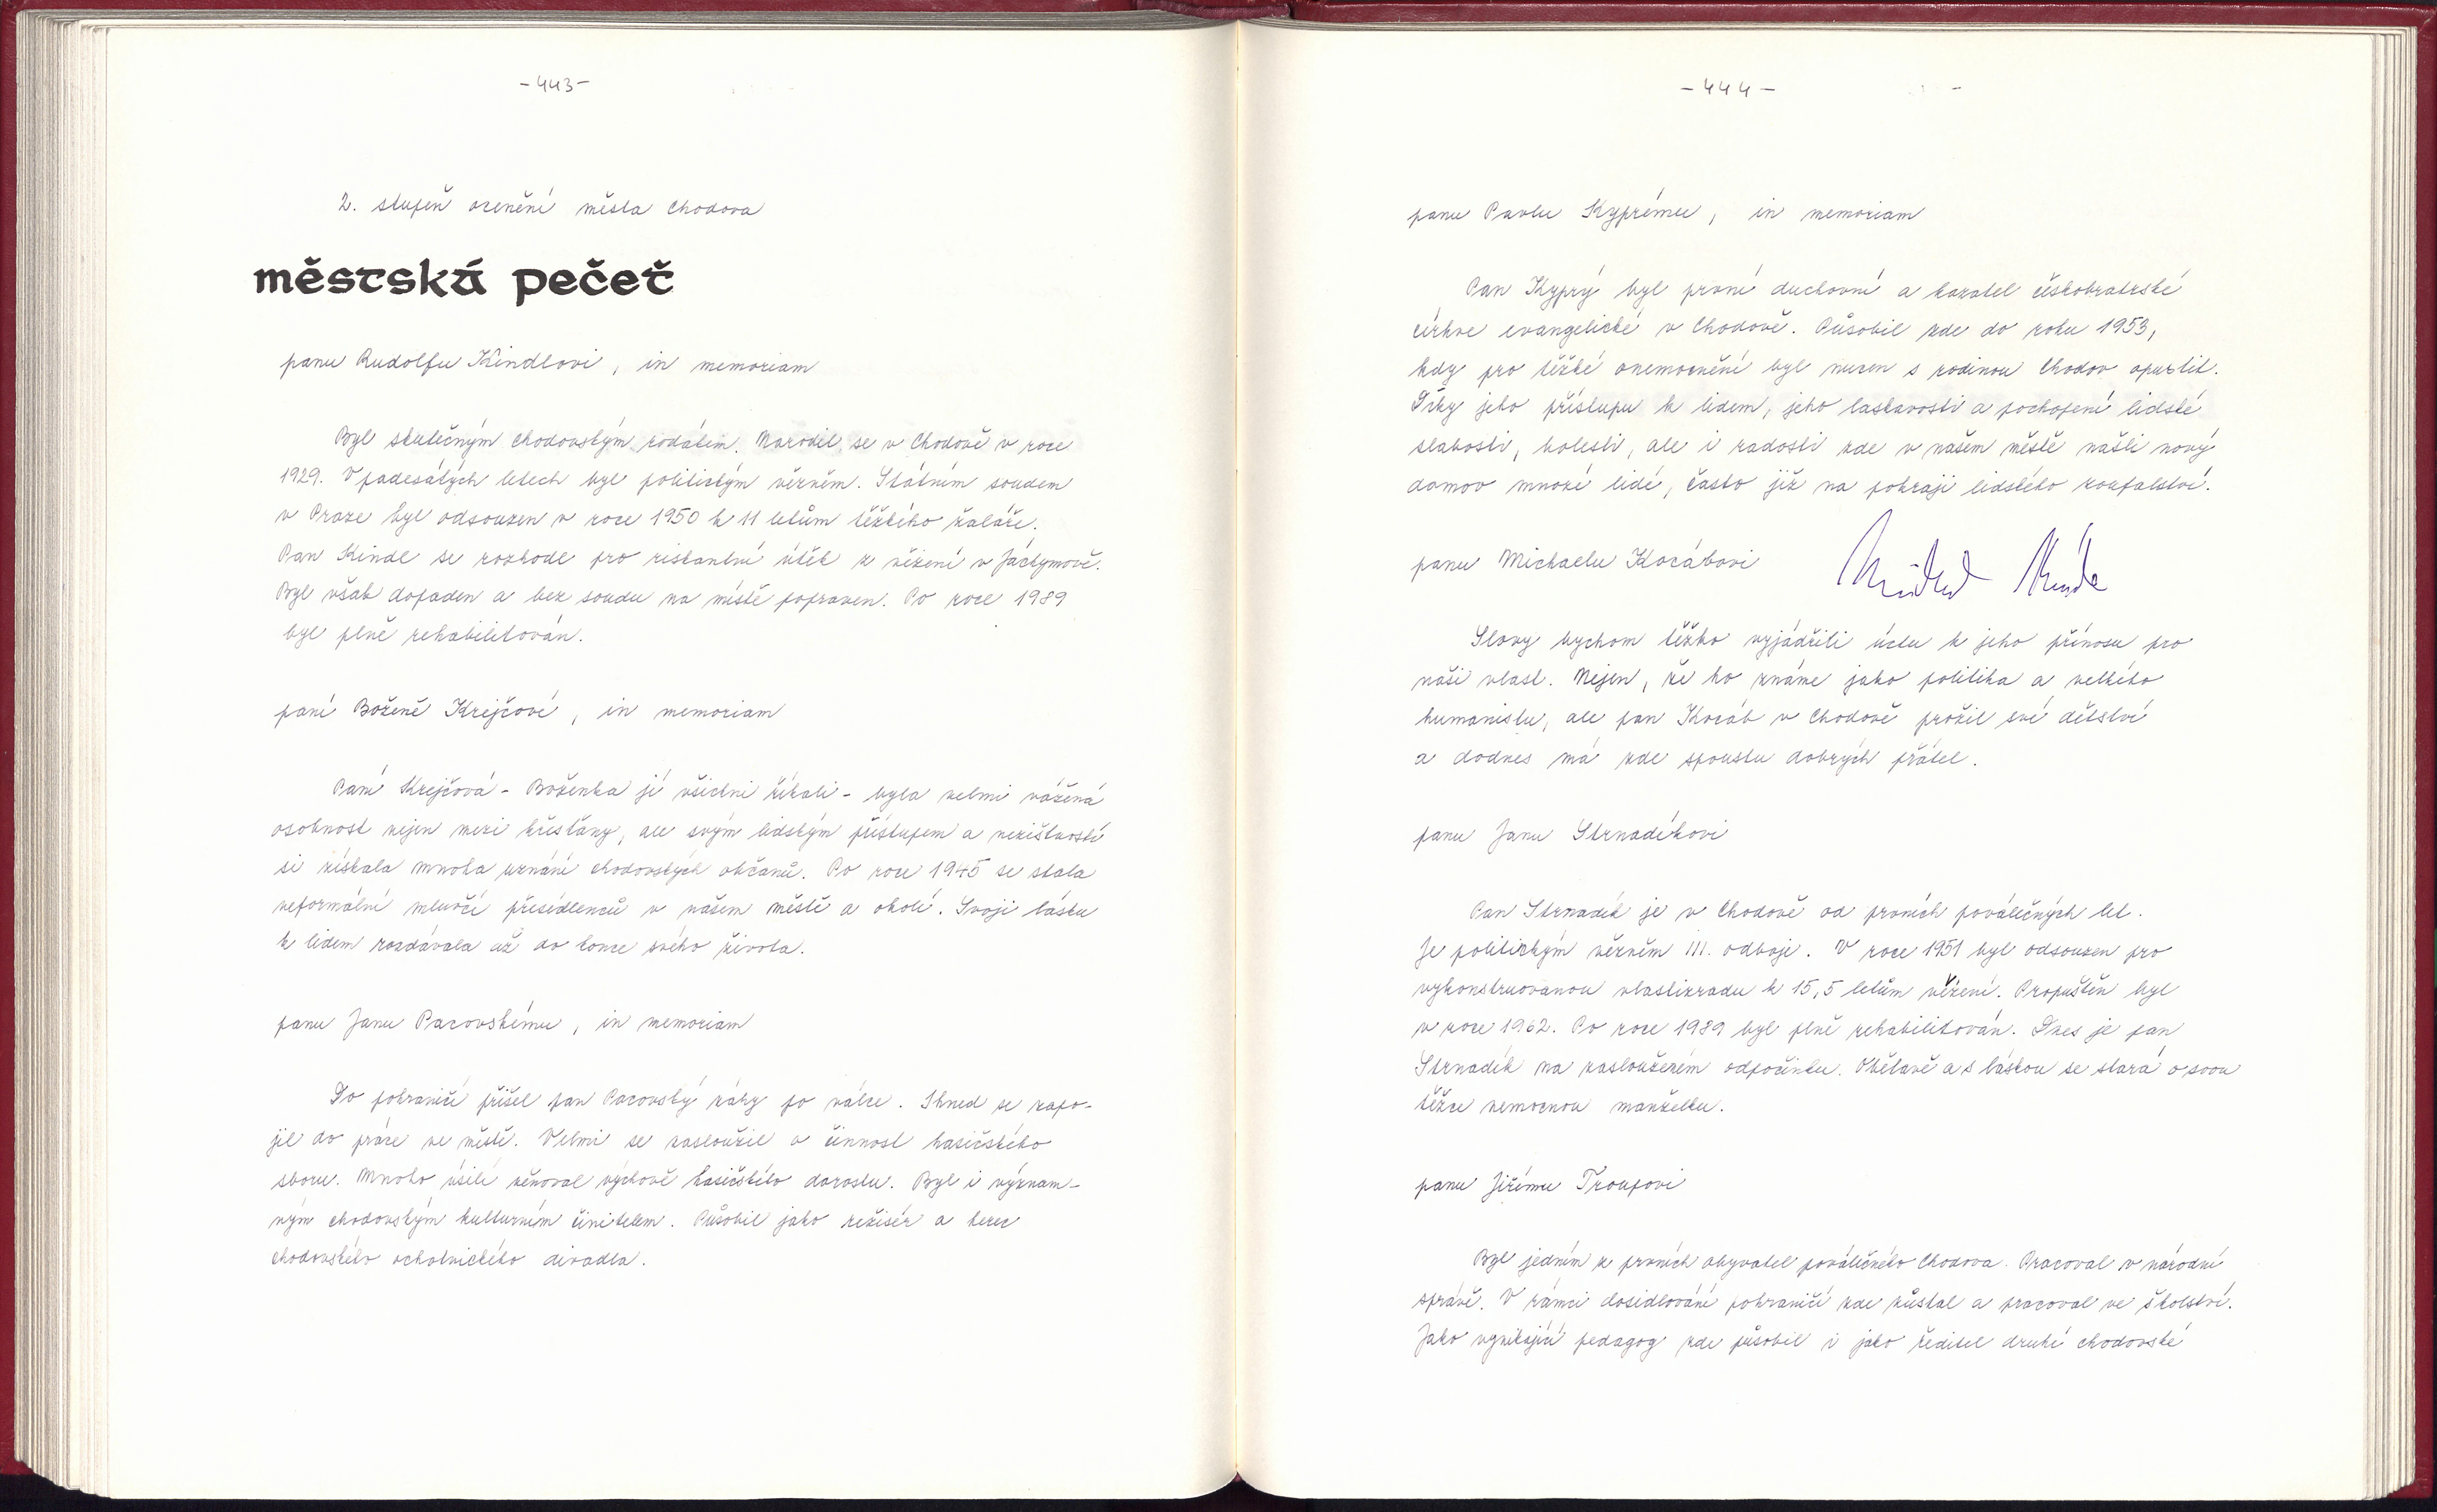 -443-
2. stupeň ocenění města Chodova
městská pečeť
panu Rudolfu Kindlovi, in memoriam
Byl skutečným chodovským rodákem. Narodil se v Chodově v roce
1929. V padesátých letech byl politickým vězněm. Státním soudem
v Praze byl odsouzen v roce 1950 k 11 letům těžkého žaláře.
Pan Kindl se rozhodl pro riskantní útěk z vězení v Jáchymově.
Byl však dopaden a bez soudu na místě popraven. Po roce 1989
byl plně rehabilitován.
paní Boženě Krejčové, in memoriam
Paní Krejčová - Boženka jí všichni říkali - byla velmi vážená
osobnost nejen mezi křesťany, ale svým lidským přístupem a nezištností
si získala mnoha uznání chodovských občanů. Po roce 1945 se stala
neformální mluvčí přesídlenců v našem městě a okolí. Svoji lásku
k lidem rozdávala až do konce svého života.
panu Janu Pacovskému, in memoriam
Do pohraničí přišel pan Pacovský záhy po válce. Ihned se zapo-
jil do práce ve městě. Velmi se zasloužil o činnost hasičského
sboru. Mnoho úsilí věnoval výchově hasičského dorostu. Byl i význam-
ným chodovským kulturním činitelem. Působil jako režisér a herec
chodovského ochotnického divadla.
-444-
panu Pavlu Kyprému, in memoriam
Pan Kyprý byl první duchovní a kazatel českobratrské
církve evangelické v Chodově. Působil zde do roku 1953,
kdy pro těžké onemocnění byl nucen s rodinou Chodov opustit.
Díky jeho přístupu k lidem, jeho laskavosti a pochopení lidské
slabosti, bolesti, ale i radosti zde v našem městě našli nový
domov mnozí lidé, často již na pokraji lidského zoufalství.
panu Michaelu Kocábovi
Slovy bychom těžko vyjádřili úctu k jeho přínosu pro
naši vlast. Nejen, že ho známe jako politika a velkého
humanistu, ale pan Kocáb v Chodově prožil své dětství
a dodnes má zde spoustu dobrých přátel.
panu Janu Strnadíkovi
Pan Strnadík je v Chodově od prvních poválečných let.
Je politickým vězněm III. odboje. V roce 1951 byl odsouzen pro
vykonstruovanou vlastizradu k 15,5 letům vězení. Propuštěn byl
v roce 1962. Po roce 1989 byl plně rehabilitován. Dnes je pan
Strnadík na zaslouženém odpočinku. Obětavě a s láskou se stará o svou
těžce nemocnou manželku.
panu Jiřímu Troupovi
Byl jedním z prvních obyvatel poválečného Chodova. Pracoval v národní
správě. V rámci dosidlování pohraničí zde zůstal a pracoval ve školství.
Jako vynikající pedagog zde působil i jako ředitel druhé chodovské